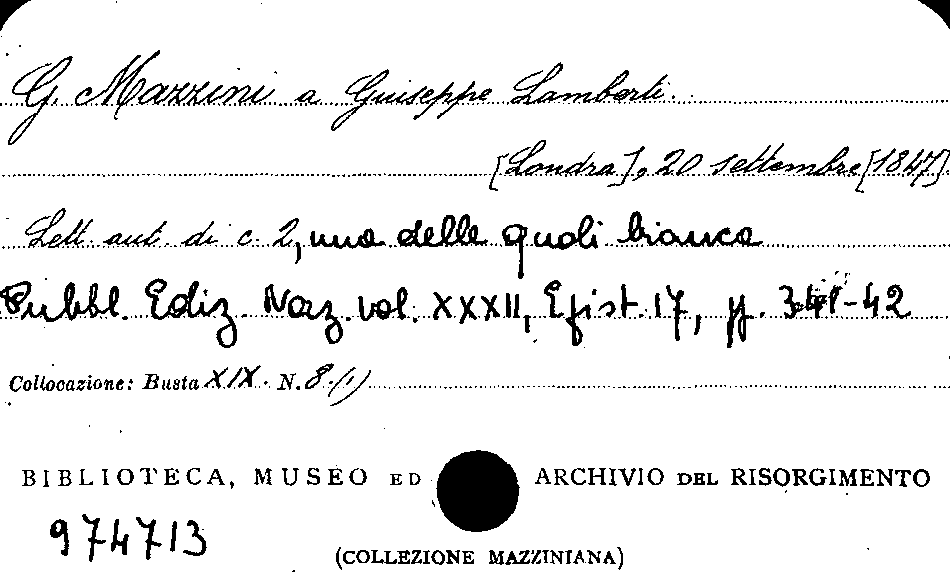 G. Mazzini a Giuseppe Lamberti.
[Londra], 20 settembre [1847].
Lett. aut. di c. 2, una delle quali bianca
Pubbl. Ediz. Naz. vol. XXXII, Epist. 17, pp. 341-42
Collocazione: Busta XIX. N. 8.(1)
BIBLIOTECA, MUSEO ED ARCHIVIO DEL RISORGIMENTO
974713
(COLLEZIONE MAZZINIANA)